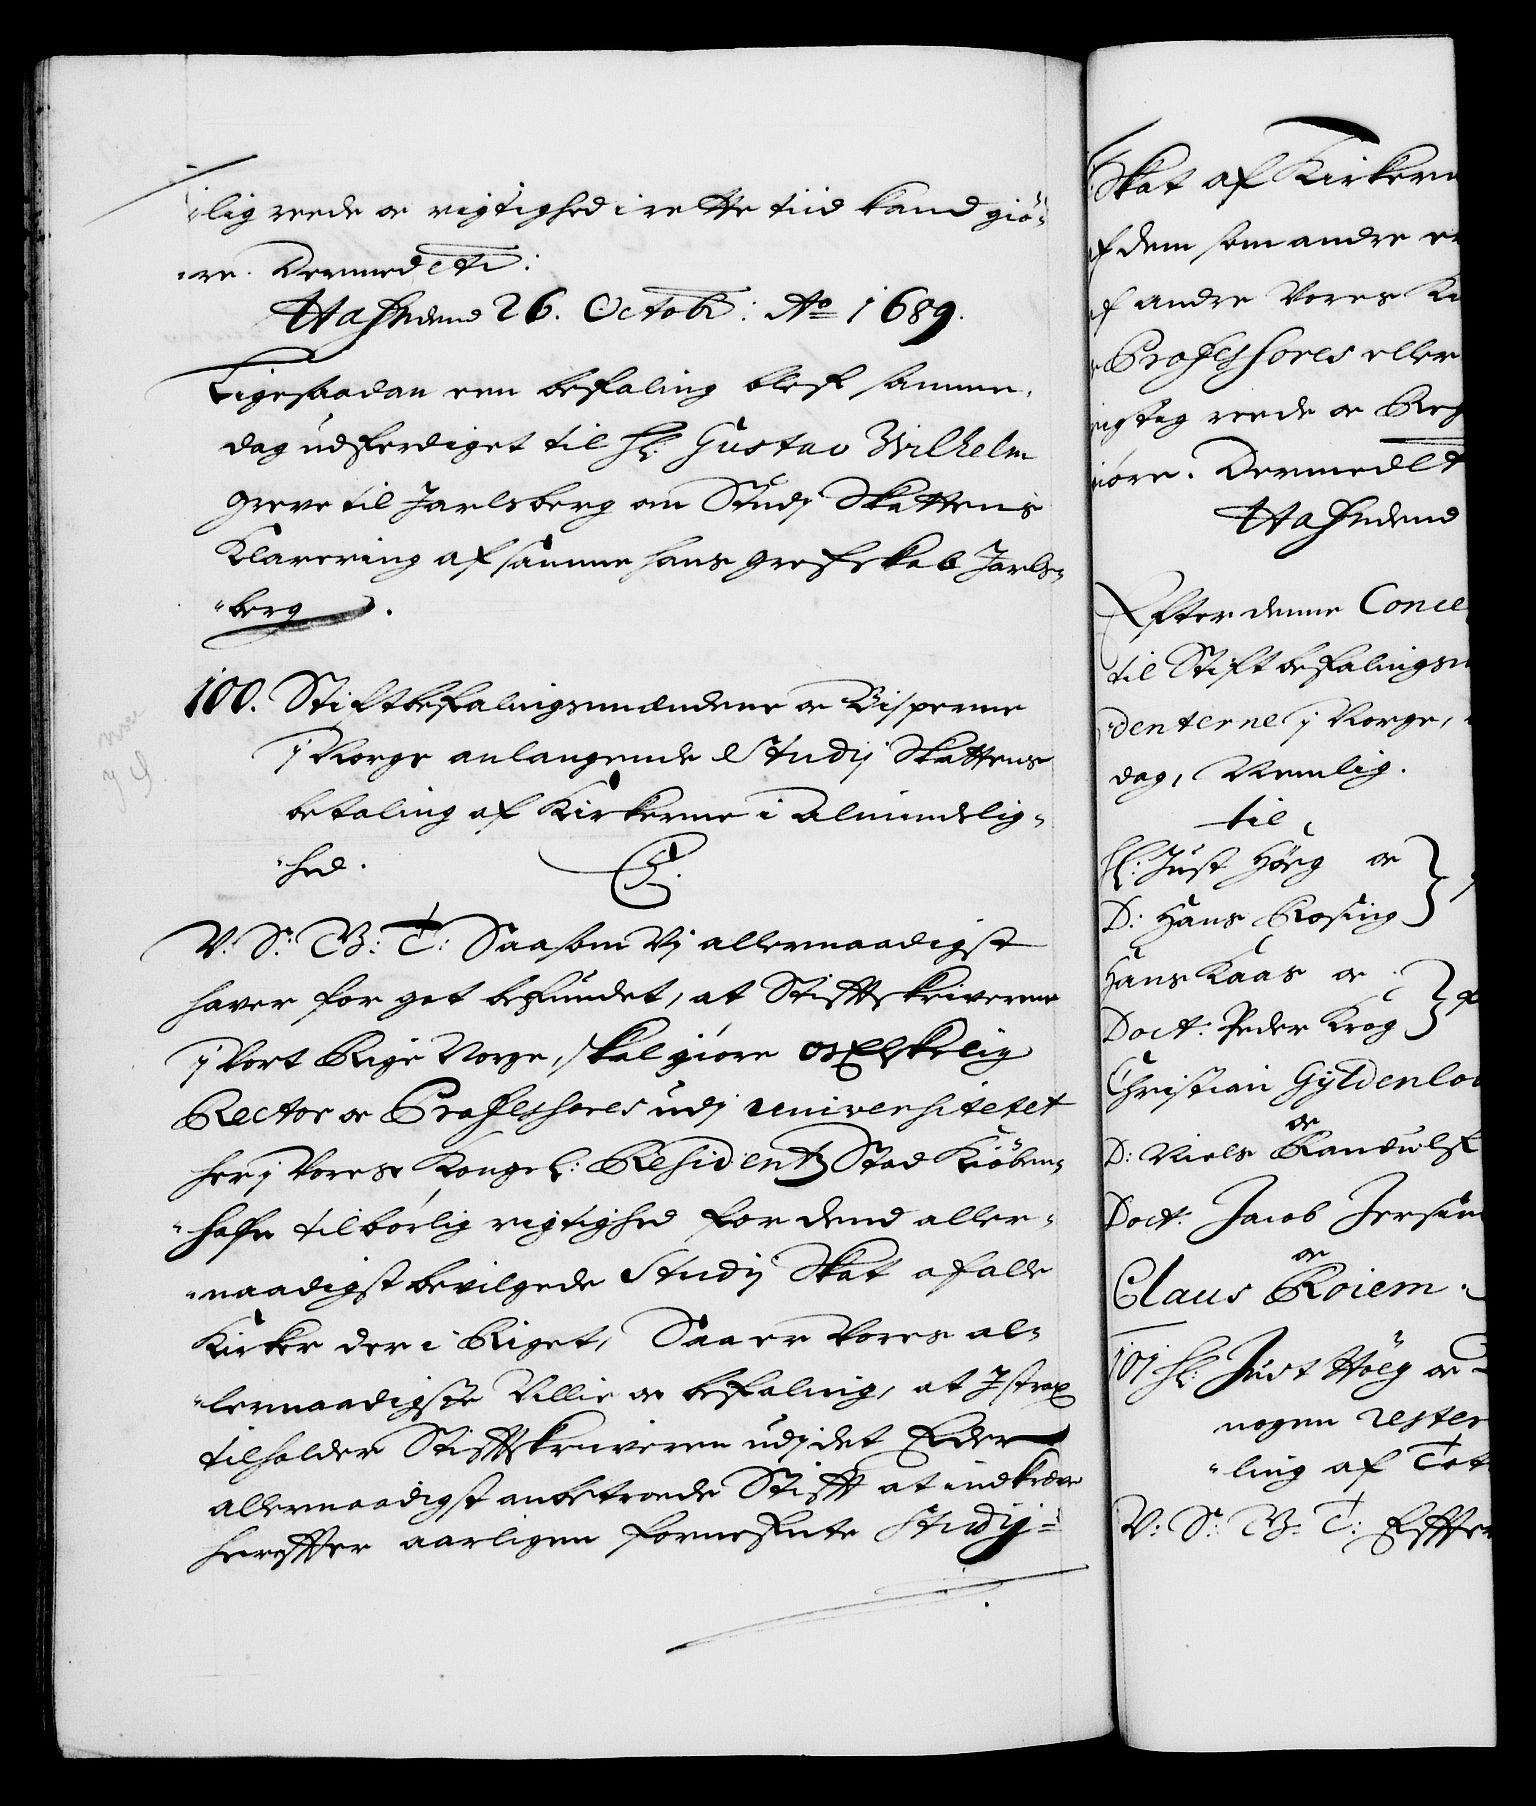 lig reede oc rigtighed i rette tiid kand giö¬
¬re. Dermed etc:
Hafn dend 26. Octobr: Ao 1689.
Ligesaadan een befaling blef samme
dag udferdiget til H: Gustav Wilhelm
Greve til Jarlsberg om Studij Skattens
Klarering af samme hans grefskab Jarls¬
¬berg.
100. Stiftbefalingsmændene oc Bisperne
j Norge anlangende Studij Skattens
betaling af Kirkerne i Almindelig¬
¬hed.
C5.
V: S: G: T: Saasom Vj allernaadigst
haver for got befundet, at Stiftskriverne
j Vort Rige Norge, skal giöre os Elskelig
Rector oc Professores udj Universitetet
her j Vores Kongel: Residentz Stad Kiöben¬
¬hafn tilbörlig rigtighed for dend aller¬
¬naadigst bevilgede Studij Skat af alle
Kirker der i Riget, Saa er Vores al¬
¬lernaadigste Villie oc befaling, at J strax
tilholder Stiftskriveren udj det Eder
allernaadigst anbetroede Stift at indkræve
herefter aarligen fornefnte Studij¬
Skat af Kirkern
af dem som andre
af andre Vores
Professores eller
rigtig reede oc
giöre. Dermed
Hafn dend
Efter denne
til Stiftbefalings
denterne j Norge,
dag, Nemlig.
til
H: Just Höeg oc
D: Hans Rosing
Hans Kaas oc
Doct: Peder Krog
Christian Gyldenlo
oc
D: Niels Randulf
Doct: Jacob Jersin
oc
Claus Röiem
101 H: Just Höeg oc
nogen rester
¬ling af
V: S: G: T: Efter